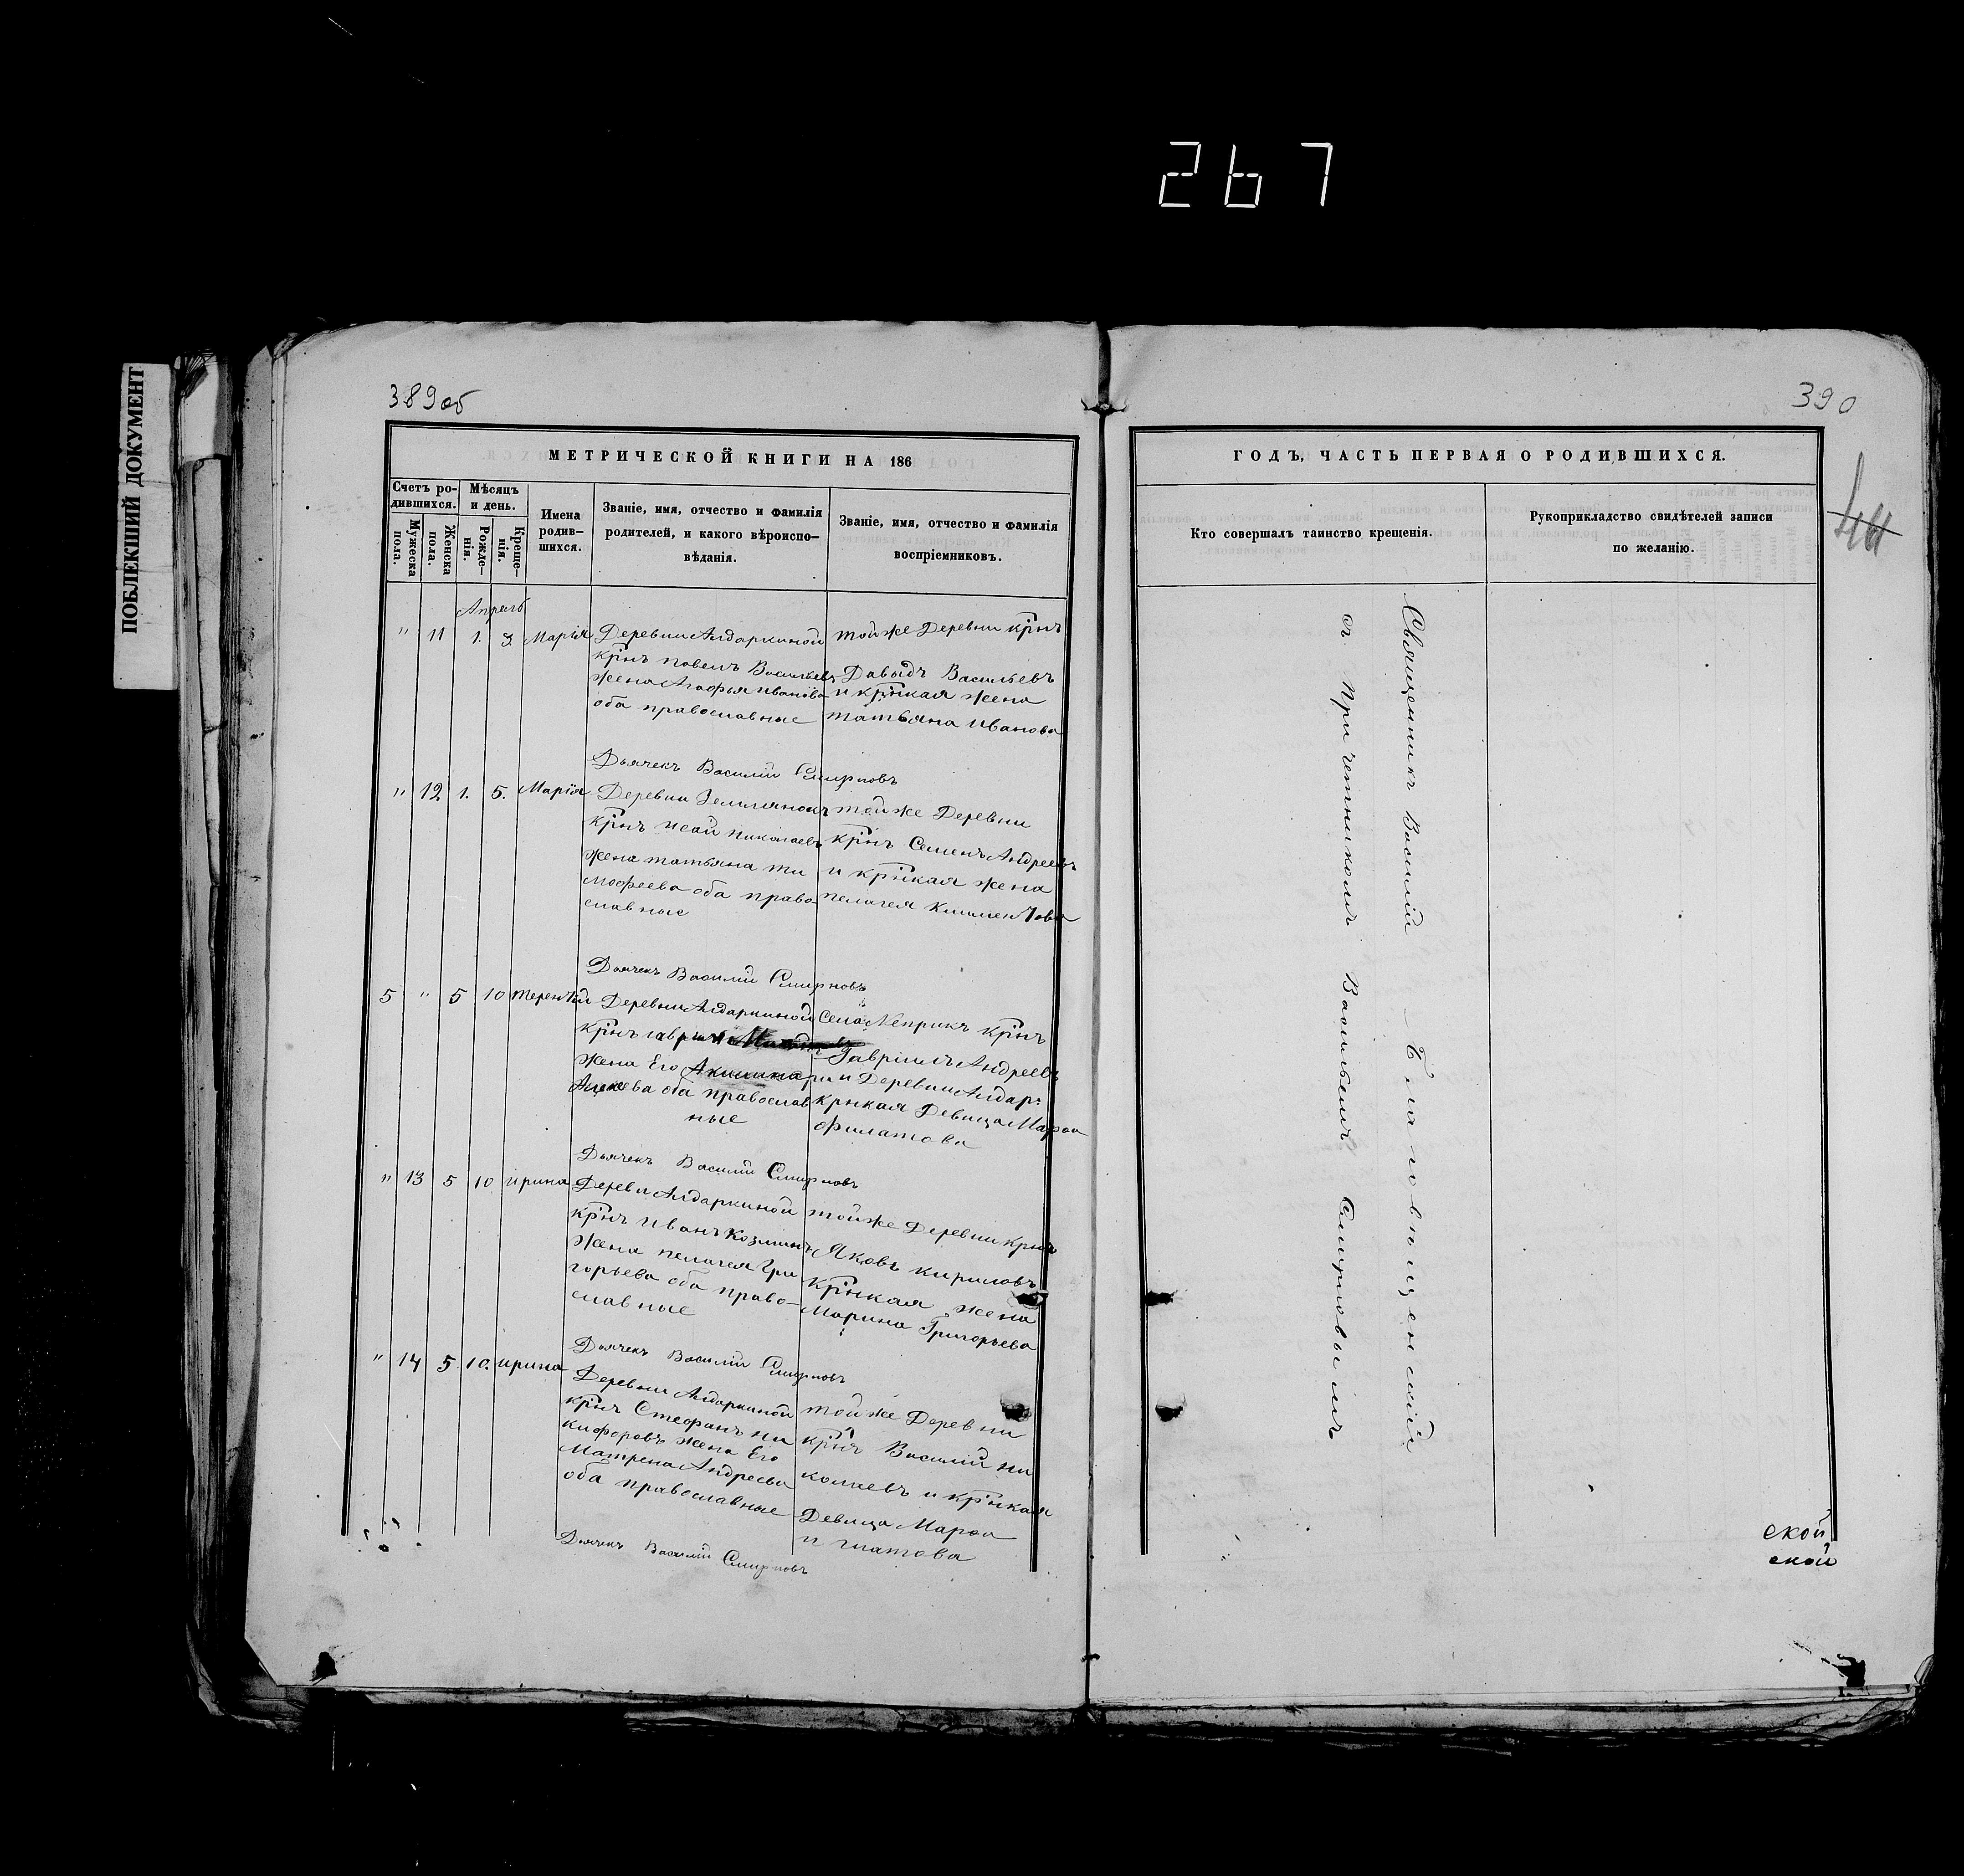 267
ПОБЛЕКШИЙ ДОКУМЕНТ
389об
МЕТРИЧЕСКОЙ КНИГИ НА 186
Счетъ ро-
дившихся.
Мужеска
пола.
Женска
пола.
Мѣсяцъ
и день.
Рожде-
нія.
Креще-
нія.
Имена
родив-
шихся.
Званіе, имя, отчество и фамилія
родителей, и какого вѣроиспо-
вѣданія.
Званіе, имя, отчество и фамилія
воспріемниковъ.
Апрель
" 11 1. 3. Марія
Деревни Алдаркиной
крнъ павелъ Васильевъ
жена Агафья иванова
оба православные
тойже Деревни крнъ
Давыдъ Васильевъ
и крнкая жена
татьяна иванова
Дьячекъ Василій Смирновъ
" 12 1. 5. Марія
Деревни Землянокъ
крнъ исай николаевъ
жена татьяна ти
мофеева оба право
славные
тойже Деревни
крнъ Семенъ Андреевъ
и крнкая жена
пелагея
Дьячекъ Василій Смирновъ
5 " 5 10 терентій
Деревни Алдаркиной
крнъ гавриилъ
жена Его
оба православ
ные
Села Неприкъ крнъ
Гавріилъ Андреевъ
и Деревни Алдар:
крнкая Девица Марѳа
филатова
Дьячекъ Василій Смирновъ
" 13 5 10 ирина
Деревни Алдаркиной
крнъ иванъ Козминъ
жена пелагея Гри
горьева оба право-
славные
тойже Деревни крнъ
Яковъ кириловъ
крнкая жена
Марина Григорьева
Дьячекъ Василій Смирновъ
" 14 5 10. ирина
Деревни Алдаркиной
крнъ Стефанъ ни
кифоровъ жена Его
Матрена Андреева
оба православные
тойже Деревни
крнъ Василій ни
колаевъ и крнкая
Девица Марѳа
игнатова
Дьячекъ Василій Смирновъ
390
44
ГОДЪ, ЧАСТЬ ПЕРВАЯ О РОДИВШИХСЯ.
Кто совершалъ таинство крещенія.
Рукоприкладство свидѣтелей записи
по желанію.
Священникъ Василій Благовѣщенскій
съ Причетникомъ Васильемъ Смирновымъ
ской
ской